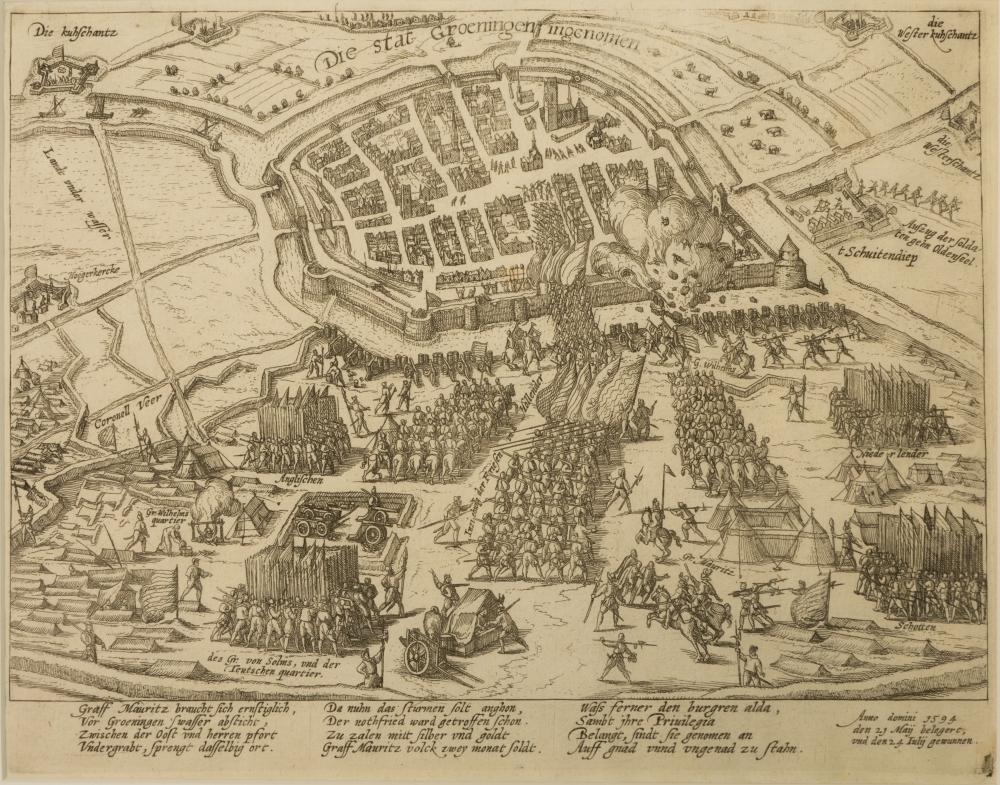 Die kuhschantz
Die stat Groeningen ingenomen
die
Wester kuhschantz
Landt vnder wasser
die
Westerschantz
Außzug der solda
ten gehn Oldenseel
t Schuitendiep
Hoggerkercke
Coronell Veer
G. Wilhelms
Anglischen
Niederlender
Gr. Wilhelms
quartier
Gr. Mauritz
Schotten
des Gr. von Solms, vnd der
Teutschen quartier.
Graff Mauritz braucht sich ernstiglich,
Vor Groeningen swasser absticht,
Zwischen der Oost vnd herren pfort
Vndergrabt, sprengt dasselbig ort.
Da nuhn das sturmen solt anghon,
Der nothfried ward getroffen schon.
Zu zalen mitt silber vnd goldt
Graff Mauritz volck zwey monat soldt.
Waß ferner den burgren alda,
Sambt ihre Privilegia
Belangt, sindt sie genomen an
Auff gnad vnnd vngenad zu stahn.
Anno domini 1594
den 21 Maij belegert,
vnd den 24 Iulij gewunnen.